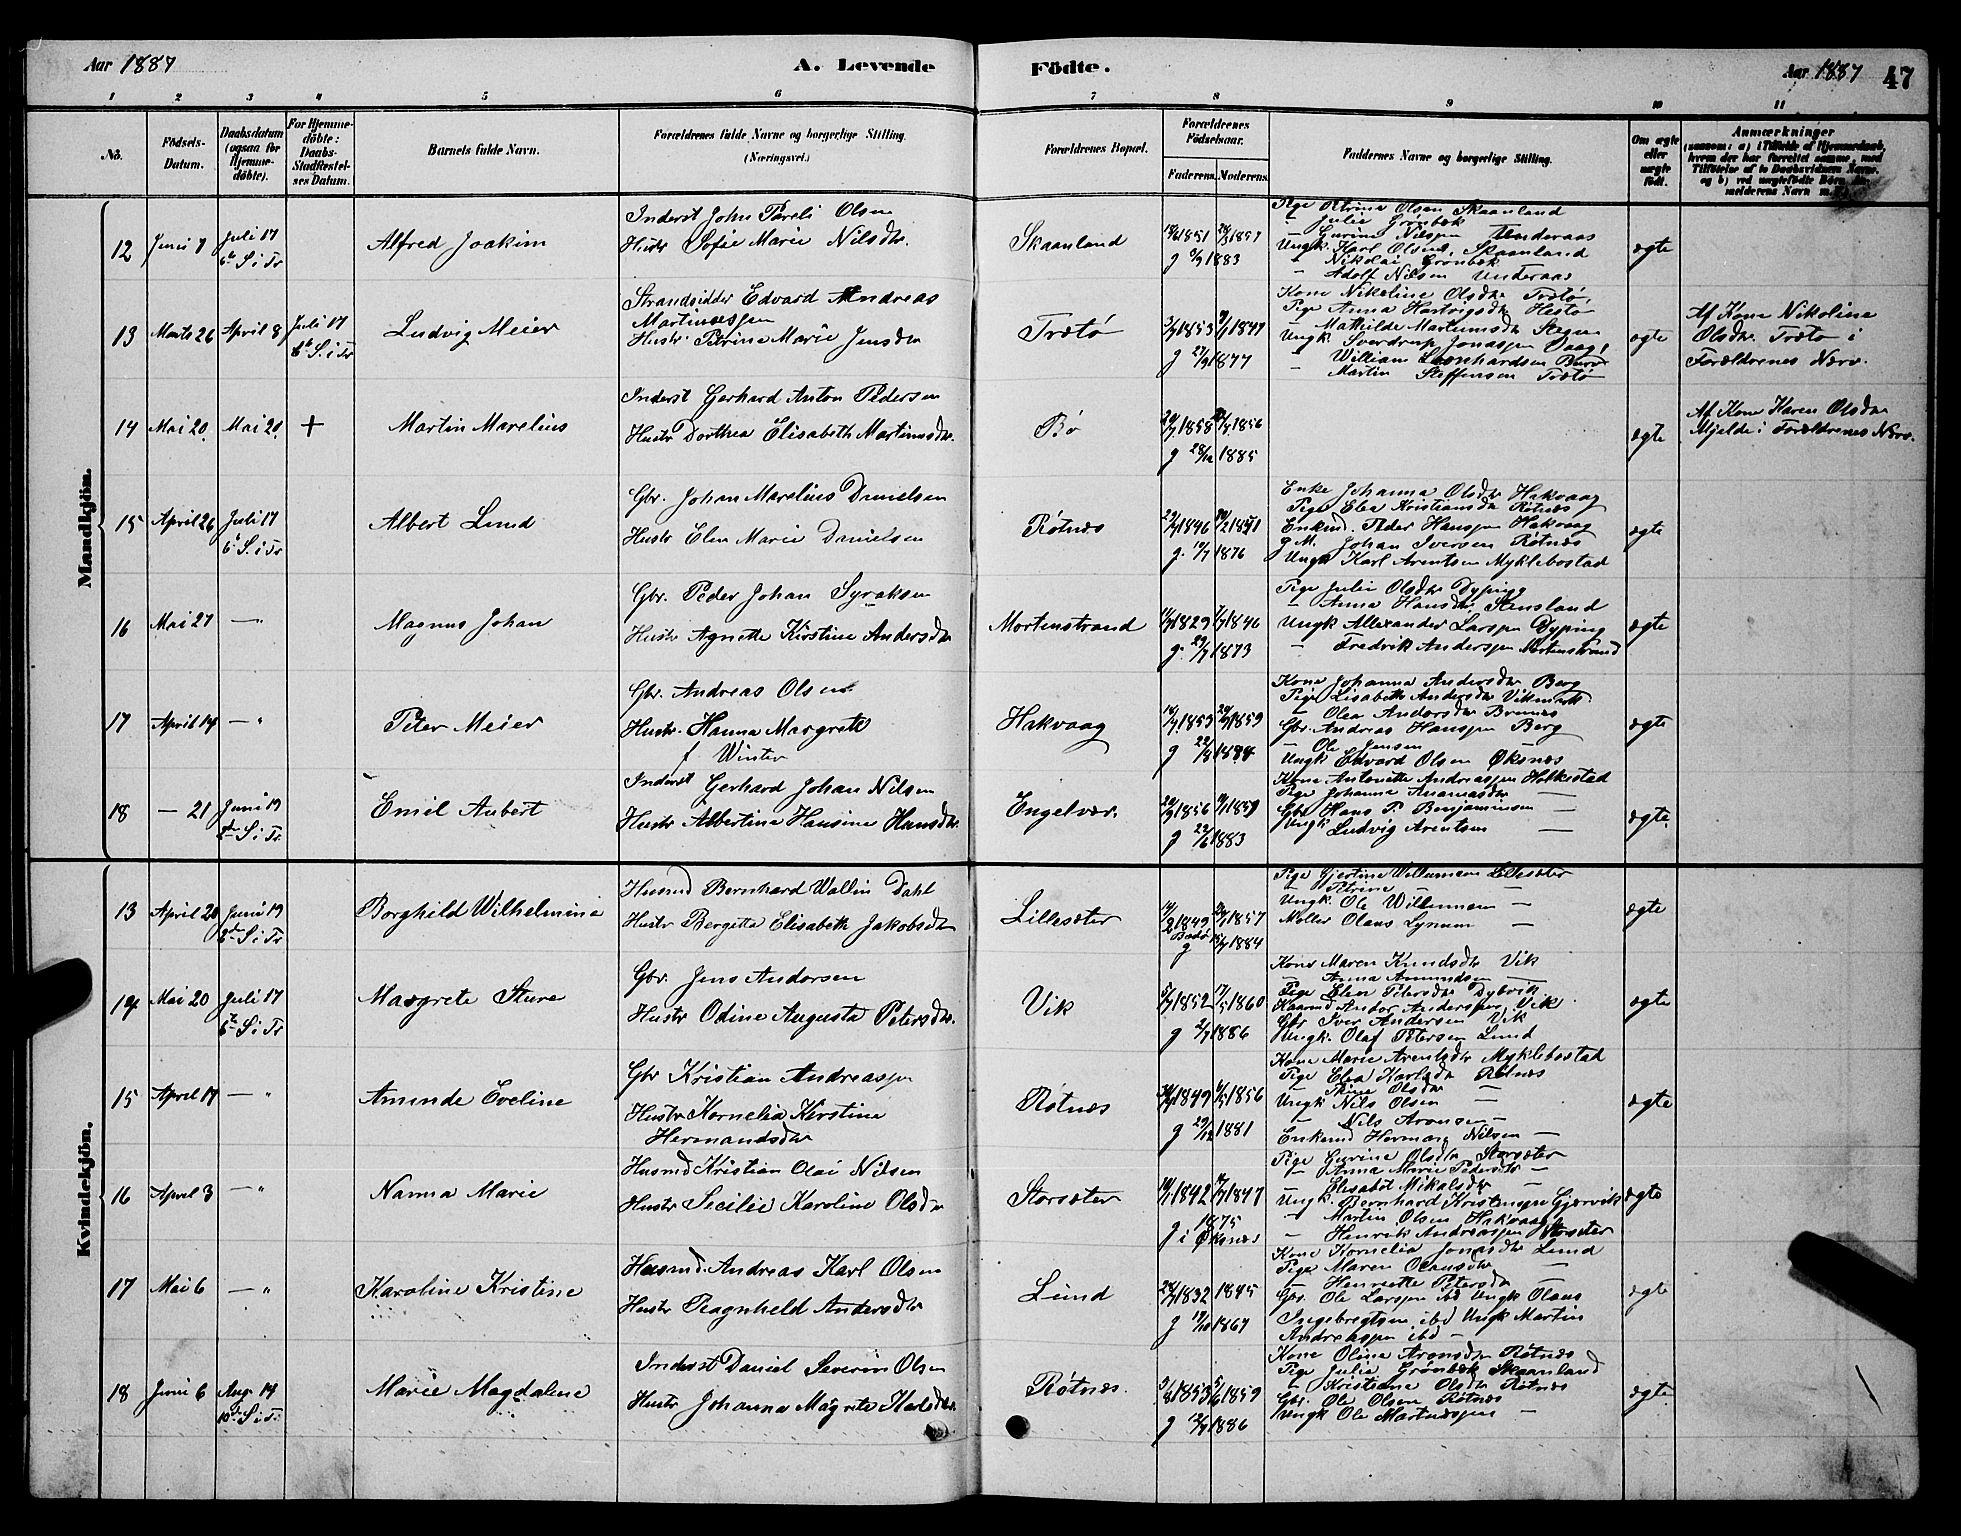 Aar 1887
A. Levende Födte.
Aar 1887 47
1 2 3 4 5 6 7 8 9 10 11
No.
Födsels-Datum.
Daabsdatum (ogsaa for Hjemme-döbte).
For Hjemme-döbte: Daabs-Stadfæstel-ses Datum.
Barnets fulde Navn.
Forældrenes fulde Navne og borgerlige Stilling. (Næringsvei.)
Forældrenes Bopæl.
Forældrenes Födselsaar.
Faderens. Moderens.
Faddernes Navne og borgerlige Stilling.
Om ægte eller uægte födt.
Anmærkninger
Mandkjön.
12 Juni 7 Juli 17 6te S. i Tr Alfred Joakim
Inderst John Pareli Olsen
Hustr Sofie Marie Nilsdtr.
Skaanland
1851 1857
g 1883
Pige Petrine Olsen Skaanland
- Julie Grønbæk
- Gurine Nilsen Underaas
Ungk. Karl Olsen Skaanland
- Nikolai Grønbek
- Adolf Nilsen Underaas
ægte
13 Marts 26 April 8 Juli 17 6te S. i Tr Ludvig Meier
Strandsidder Edvard Andreas
Martinussen
Hustr Petrine Marie Jensdtr
Trætø
1853 1847
g 1877
Kone Nikoline Olsdtr Trætø
Pige Anna Hartvigsdtr Hestø
- Mathilde Martinusdtr Stegen
Ungk Sverdrup Jonassen Vaag
- William Leonhardsen
- Martin Steffensen Trætø
ægte
Af Kone Nikoline
Olsdtr. Trætø i
Forældrenes Nærv.
14 Mai 20. Mai 20. + Martin Marelius
Inderst Gerhard Anton Pedersen
Hustr Dorthea Elisabeth Martinusdtr.
Bø
1858 1856
g 28/12 1885
ægte
Af Kone Karen Olsdtr
Mjelde i Forældrenes Nærv.
15 April 26 Juli 17 6te S. i Tr Albert Lund
Gbr. Johan Marelius Danielsen
Hustr Elen Marie Danielsen
Røtnæs
1846 1851
g. 1876
Enke Johanna Olsdtr Hakvaag
Pige Elea Kristiansdtr Røtnæs
Enkmd. Peder Hanssen Hakvaag
G. M. Johan Iversen Røtnæs
Ungk Karl Arentsen Myklebostad
ægte
16 Mai 27 — " Magnus Johan
Gbr. Peder Johan Syraksen
Hustr Agnethe Kirstine Andersdtr
Mortenstrand
1829 1846
g. 1873
Pige Julie Olsdtr Dyping
- Anna Hansdtr Stensland
Ungk Allexander Larssen Dyping
- Fredrik Anderssen Mortenstrand
ægte
17 April 14 — " Peter Meier
Gbr. Andreas Olsen
Hustr. Hanna Margrete
f Winter
Hakvaag
1859 1859
g 1884
Kone Johanna Andersdtr Berg
Pige Lisabeth Andersdtr
- Olea Andersdtr Brennes
Gbr. Andreas Hanssen Berg
- Ole Jensen
Ungk Edvard Olsen Øksnes
ægte
18 — 21 Juni 19 2den S. i Tr Emil Aubert
Inderst Gerhard Johan Nilsen
Hustr Albertina Hansine Hansdtr.
Engelvær.
1856 1859
g 1883
Kone Antonette Andreassen Helkestad
Pige Johanna Ananiasdtr —
Gbr Hans P. Benjaminsen —
Ungk Ludvig Arentsen —
ægte.
Kvindekjön.
13 April 20 Juni 19 2den S. i Tr Borghild Wilhelmine
Husmd Bernhard Wallin Dahl
Hustr Bergitta Elisabeth Jakobsdtr
Lillesæter
1849 1857
Bodø
g 1884
Pige Gjertine Willumsen Lillesæter
- Petrine — —
Ungk Ole Willumsen —
Møller Olaus Lynum —
ægte
14 Mai 20 Juli 17 6te S i Tr Margrete Sture
Gbr. Jens Andersen
Hustr Odine Augusta Petersdtr.
Vik
1852 1860
g 1886
Kone Maren Knudsdtr Vik
- Anna Amundsen —
Pige Elen Petersdtr Dybvik
Kaarmd Andor Anderssen Vik
Gbr Iver Andersen Vik
Ungk. Olaf Petersen Lund
ægte
15 April 17 — " Amunde Eveline
Gbr Kristian Andreassen
Hustr Kornelia Kirstine
Hermandsdtr
Røtnæs
1849 1856
g 29/12 1881
Kone Marie Arentsdtr Myklebostad
Pige Elea Karlsdtr Røtnæs
- Stine Olsdtr —
Ungk Nils Olsen —
- Nils Aronsen —
Enkemd Herman Nilsen —
ægte
16 April 3 — " Nanna Marie
Husmd Kristian Olai Nilsen
Hustr Secilie Karoline Olsdtr
Storsæter
1842 1847
g 1875
i Øksnes
Pige Gurine Olsdtr Storsæter
- Anna Marie Pedersdtr —
- Elisabet Mikalsdtr —
Ungk. Bernhard Kristensen Gjærvik
- Martin Olsen Hakvaag
- Henrik Andreassen Storsæter
ægte
17 Mai 6 — " Karoline Kristine
Husmd. Andreas Karl Olsen
Hustr Ragnhild Andersdtr
Lund
1832 1845
g 1867
Kone Kornelia Jonasdtr Lund
Pige Maren Olausdtr —
- Henriette Petersdtr —
Gbr. Ole Larssen ibd Ungk Olaus
Ingebregtsen ibd Ungk Martin
Andreassen ibd —
ægte
18 Juni 6 Aug. 14 10de S. i Tr. Marie Magdalene
Inderst Daniel Severin Olsen
Hustr Johanna Magrete Karlsdtr.
Røtnæs.
1853 1859
g 1886
Kone Olina Aronsdtr Røtnæs
Pige Julie Grønbæk Skaanland
- Kristiane Olsdtr Røtnæs
Gbr. Ole Olsen Røtnæs
Ungk Ole Martinussen —
ægte